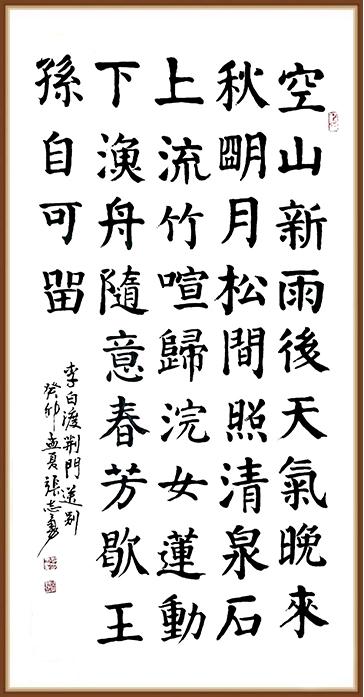 空山新雨後天氣晚來
秋朙月松間照清泉石
上流竹喧歸浣女蓮動
下漁舟隨意春芳歇王
孫自可留
李白渡荆門送别
癸卯孟夏張志勇